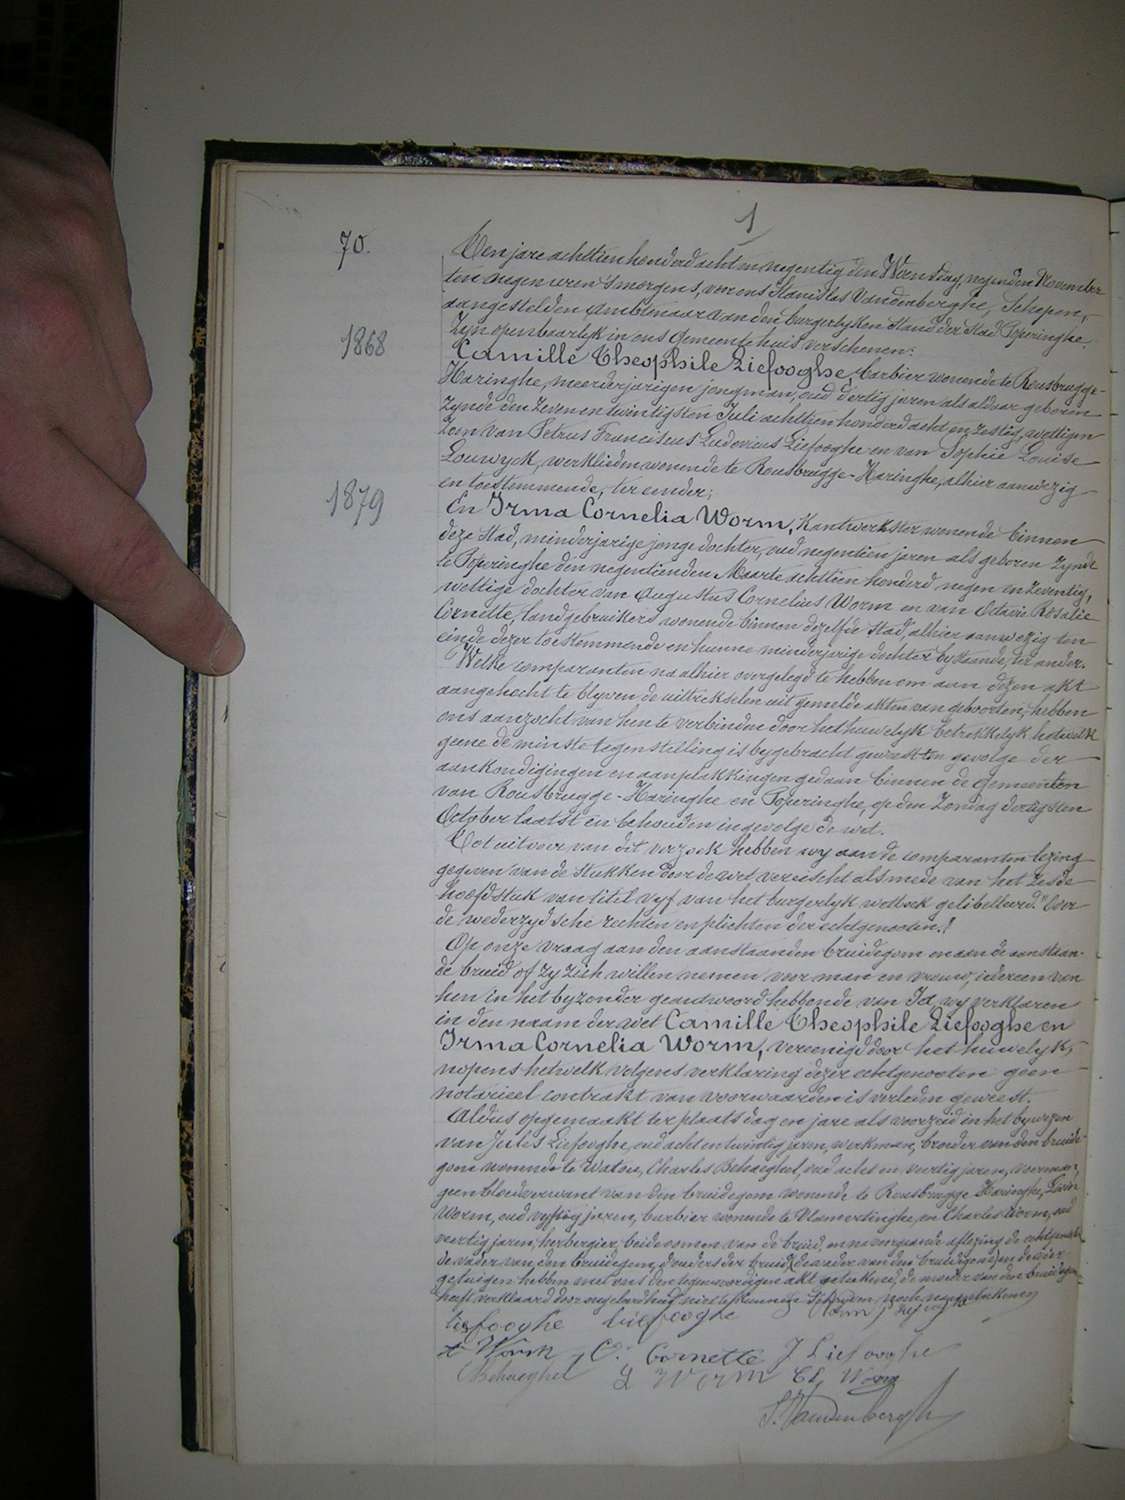 1
70.
Den jare achttien honderd acht en negentig den Woensdag, negenden November
ten negen uren 's morgens, voor ons Stanislas Vandenberghe, Schepen,
aangestelden ambtenaar van den burgerlyken stand der Stad Poperinghe,
zyn openbaarlyk in ons gemeentehuis verschenen:
1868
Camille Theophile Liefooghe, barbier wonende te Rousbrugge-
Haringhe, meerderjarigen jongman, oud dertig jaren als aldaar geboren
zynde den zeven en twintigsten Juli achttien honderd acht en zestig, wettigen
zoon van Petrus Franciscus Ludovicus Liefooghe en van Sophie Louise
Louwyck, werklieden wonende te Rousbrugge-Haringhe, alhier aanwezig
en toestemmende, ter eender;
1879
En Irma Cornelia Worm, Kantwerkster wonende binnen
deze Stad, minderjarige jonge dochter, oud negentien jaren als geboren zynde
te Poperinghe den negentienden Maarte achttien honderd negen en zeventig,
wettige dochter van Augustus Cornelius Worm en van Octavie Rosalie
Cornette, landgebruikers wonende binnen dezelfde stad, alhier aanwezig ten
einde dezer toestemmende en hunne minderjarige dochter bystaande, ter ander.
Welke comparanten na alhier overgelegd te hebben om aan dezen akt
aangehecht te blyven de uittrekselen uit gemelde akten van geboorten, hebben
ons aanzocht van hen te verbinden door het huwelyk betrekkelyk hetwelk
geene de minste tegenstelling is bygebracht geweest ten gevolge der
aankondigingen en aanplakkingen gedaan binnen de gemeenten
van Rousbrugge-Haringhe en Poperinghe, op den Zondag dertigsten
October laatst en behouden ingevolge de wet.
Tot uitvoer van dit verzoek hebben wy aan de comparanten lezing
gegeven van de stukken door de wet vereischt alsmede van het zesde
hoofdstuk van titel vyf van het burgerlyk wetboek gelibelleerd "Over
de wederzydsche rechten en plichten der echtgenooten."
Op onze vraag aan den aanstaanden bruidegom en aan de aanstaan-
de bruid of zy zich willen nemen voor man en vrouw, iedereen van
hen in het byzonder geantwoord hebbende van Ja, wy verklaren
in den naam der wet Camille Theophile Liefooghe en
Irma Cornelia Worm, vereenigd door het huwelyk,
nopens hetwelk volgens verklaring dezer echtgenooten geen
notarieel contrakt van voorwaarden is verleden geweest.
Aldus opgemaakt ter plaats dag en jare als voorzeid in het bywezen
van Julis Liefooghe, oud acht en twintig jaren, werkman, broeder van den bruide-
gom wonende te Watou, Charles Behaeghel, oud acht en veertig jaren, voerman,
geen bloedverwant van den bruidegom wonende te Rousbrugge Haringhe,
Worm, oud vyftig jaren, barbier wonende te Vlamertinghe, en Charles Worm, oud
veertig jaren, herbergier, beide oomen van de bruid, en na voorgaande aflezing de echtgenooten
de vader van den bruidegom, d'ouders der bruid, en de vier
getuigen hebben met ons den tegenwoordigen akt geteekend; de moeder van den bruidegom
heeft verklaard door ongeleerdheid niet te kunnen schryven noch naamteekenen
Liefooghe Liefooghe Worm
Worm C. Cornette J Liefooghe
Behaeghel L Worm Ch. Worm
S. Vandenberghe